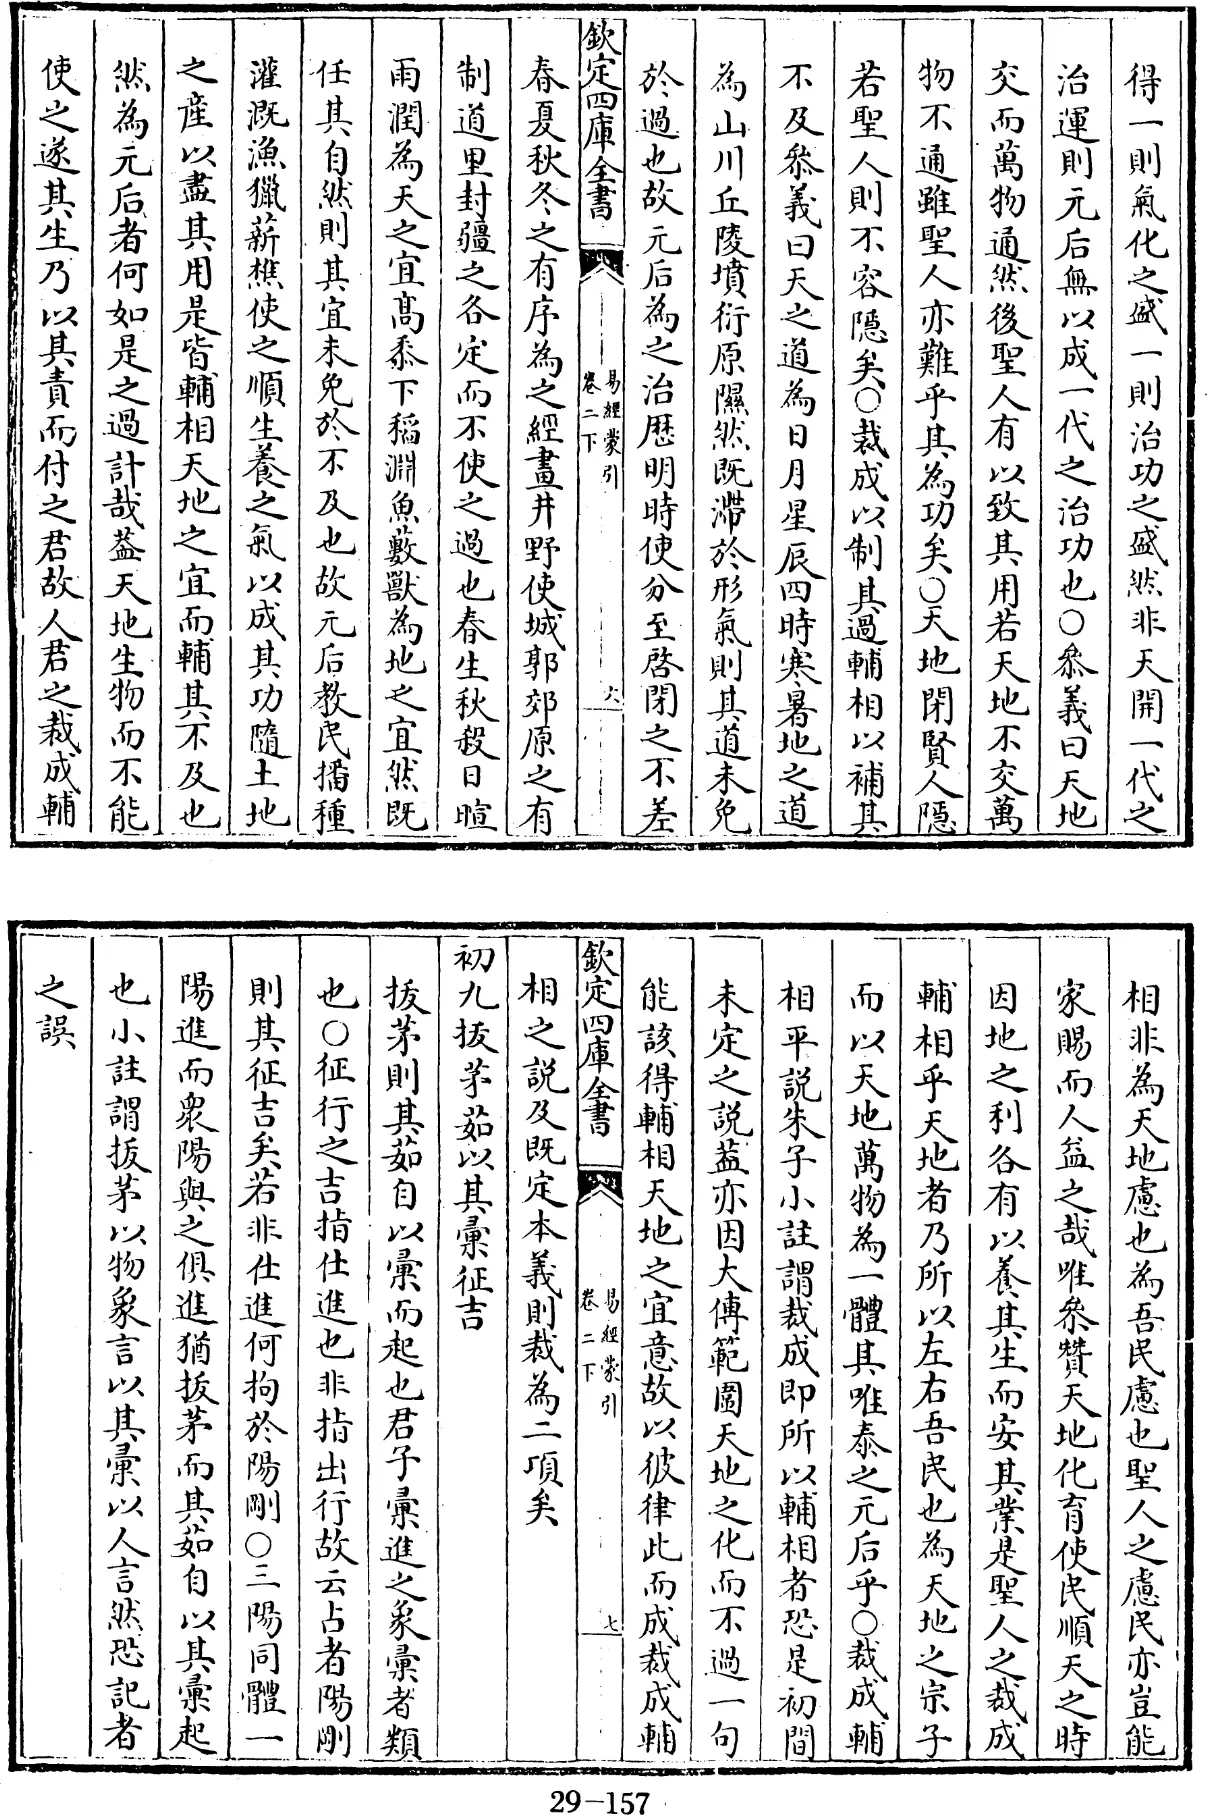 得一則氣化之盛一則治功之盛然非天開一代之
治運則元后無以成一代之治功也○叅義曰天地
交而萬物通然後聖人有以致其用若天地不交萬
物不通雖聖人亦難乎其為功矣○天地閉賢人隱
若聖人則不容隱矣○裁成以制其過輔相以補其
不及叅義曰天之道為日月星辰四時寒暑地之道
為山川丘陵墳衍原隰然既滯於形氣則其道未免
於過也故元后為之治厯明時使分至啓閉之不差
欽定四庫全書
易經蒙引
卷二下
六
春夏秋冬之有序為之經畫井野使城郭郊原之有
制道里封疆之各定而不使之過也春生秋殺日暄
雨潤為天之宜高黍下稻淵魚藪獸為地之宜然既
任其自然則其宜未免於不及也故元后教民播種
灌溉漁獵薪樵使之順生養之氣以成其功隨土地
之産以盡其用是皆輔相天地之宜而輔其不及也
然為元后者何如是之過計哉葢天地生物而不能
使之遂其生乃以其責而付之君故人君之裁成輔
相非為天地慮也為吾民慮也聖人之慮民亦豈能
家賜而人益之哉唯叅贊天地化育使民順天之時
因地之利各有以養其生而安其業是聖人之裁成
輔相乎天地者乃所以左右吾民也為天地之宗子
而以天地萬物為一體其唯泰之元后乎○裁成輔
相平説朱子小註謂裁成即所以輔相者恐是初間
未定之説葢亦因大傳範圍天地之化而不過一句
能該得輔相天地之宜意故以彼律此而成裁成輔
欽定四庫全書
易經蒙引
卷二下
七
相之説及既定本義則裁為二項矣
初九拔茅茹以其彚征吉
拔茅則其茹自以彚而起也君子彚進之象彚者類
也○征行之吉指仕進也非指出行故云占者陽剛
則其征吉矣若非仕進何拘於陽剛○三陽同體一
陽進而衆陽與之俱進猶拔茅而其茹自以其彚起
也小註謂拔茅以物象言以其彚以人言然恐記者
之誤
29-157